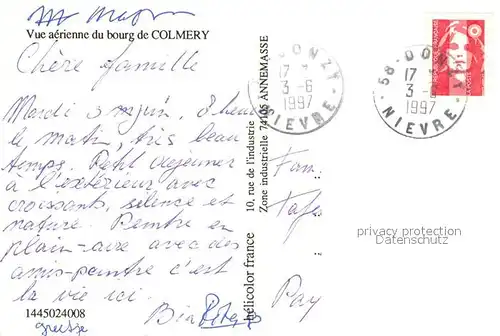 Vue aérienne du bourg de COLMERY
Chère famille
Mardi 3 mjuin, 8 heu
le matin, très beau
temps. Petit dejeuner
à l'extérieur avec
croissants, silence et
nature. Peintre en
plain-aire avec des
amis-peintre c'est
la vie ici.
1445024008
hélicolor france
10, rue de l'industrie
Zone industrielle 74105 ANNEMASSE
58-DONZY
17
3-6
1997
NIEVRE
58-DONZY
17
3-
1997
NIEVRE
Fam
Pay
privacy protection
Datenschutz